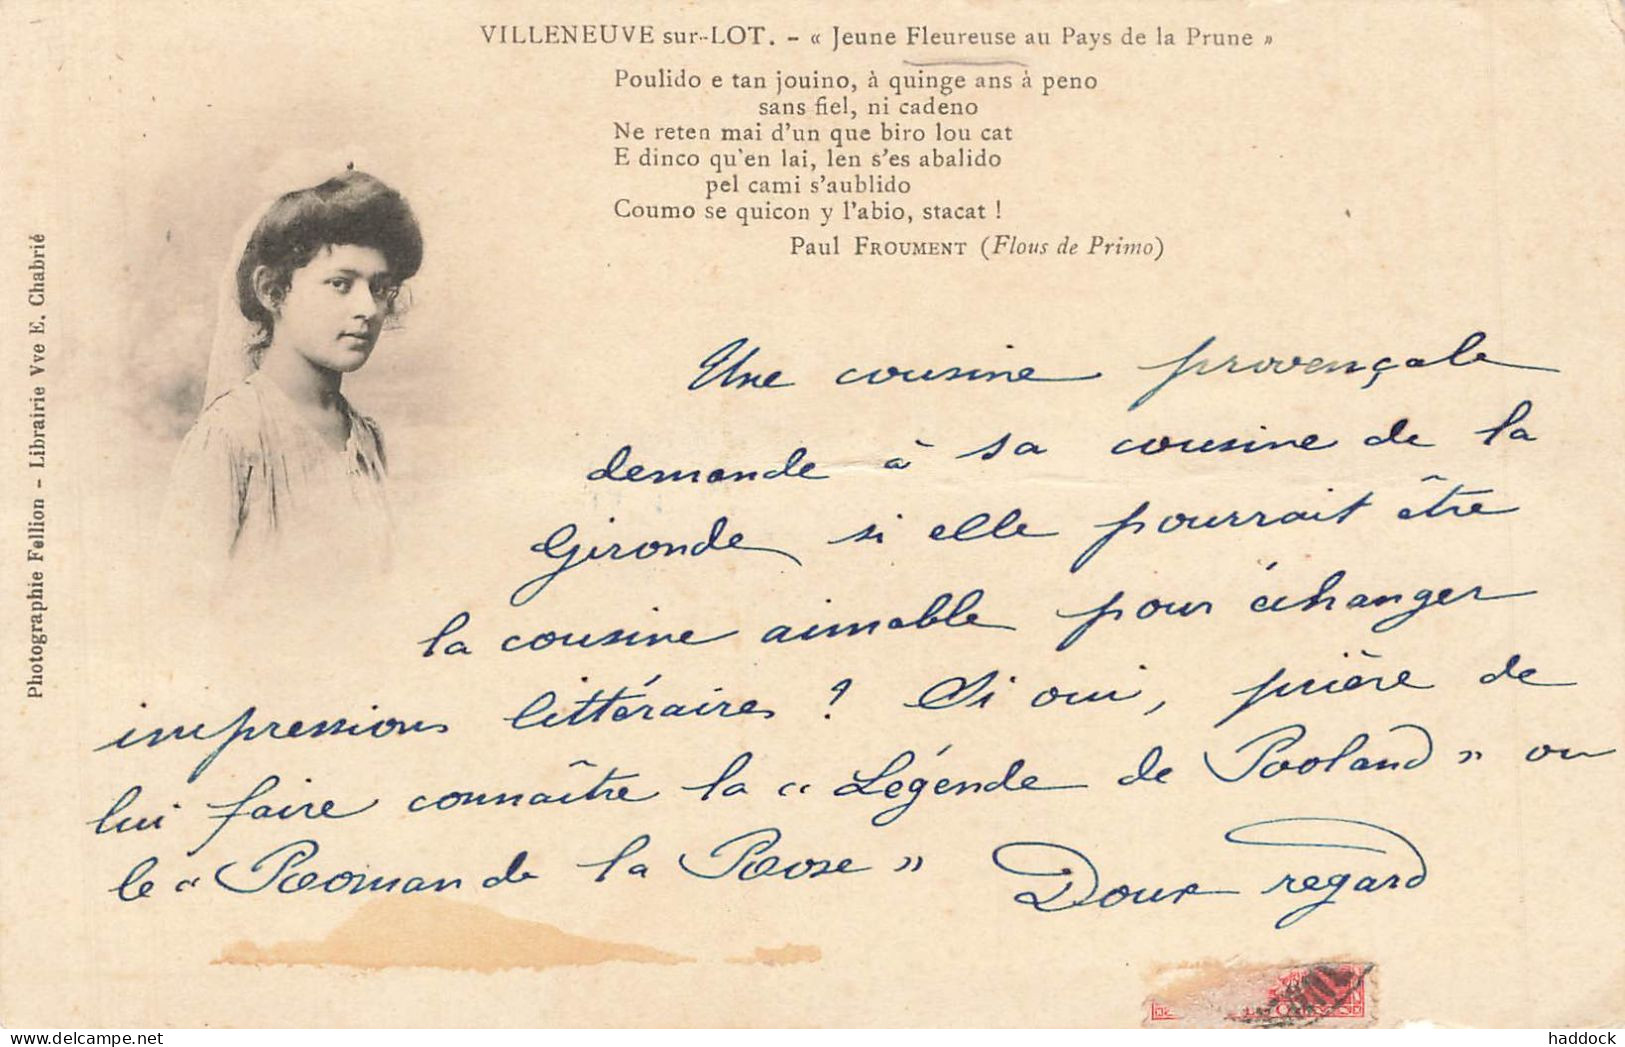 VILLENEUVE sur-LOT. - « Jeune Fleureuse au Pays de la Prune »
Poulido e tan jouino, à quinge ans à peno
sans fiel, ni cadeno
Ne reten mai d'un que biro lou cat
E dinco qu'en lai, len s'es abalido
pel cami s'aublido
Coumo se quicon y l'abio, stacat !
Paul FROUMENT (Flous de Primo)
Photographie Fellion - Librairie Vve E. Chabrié
Une cousine provençale
demande à sa cousine de la
Gironde, si elle pourrait être
la cousine aimable pour échanger
impressions littéraires ? Si oui, prière de
lui faire connaître la « Légende de Rooland » ou
le « Roman de la Rose » Doux regard
haddock